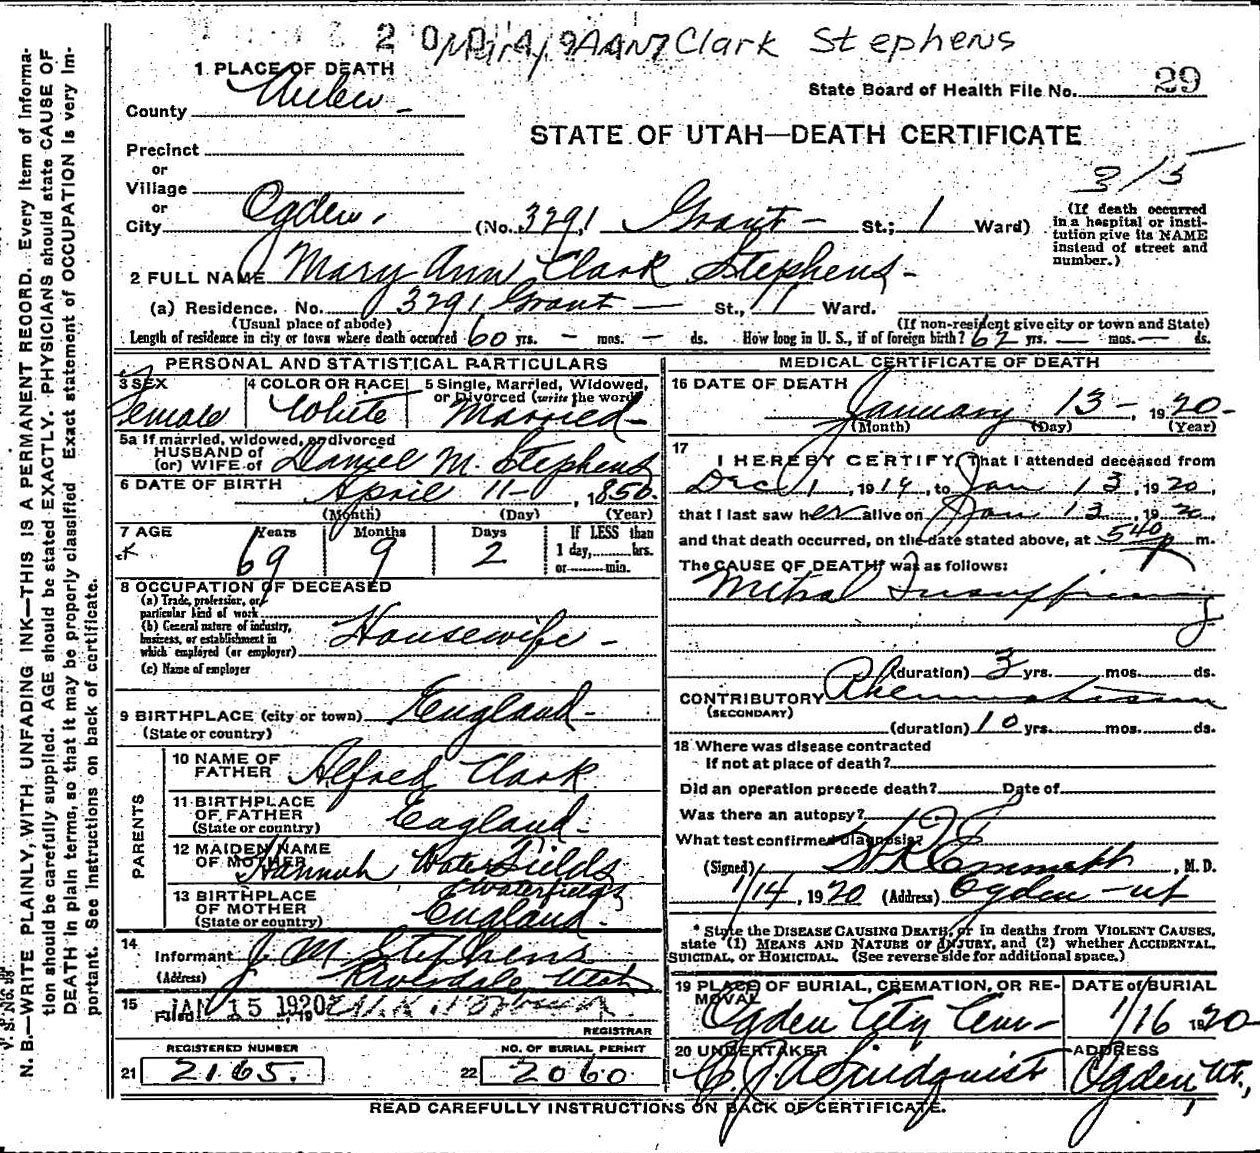 2 0 0 4 9
Mary Ann Clark Stephens
1 PLACE OF DEATH
State Board of Health File No. 29
County Weber
STATE OF UTAH—DEATH CERTIFICATE
Precinct
or
Village
or
City Ogden. (No. 3291 Grant St.; 1 Ward)
3/15
(If death occurred
in a hospital or insti-
tution give its NAME
instead of street and
number.)
2 FULL NAME Mary Ann Clark Stephens
(a) Residence. No. 3291 Grant St., 1 Ward.
(Usual place of abode)
(If non-resident give city or town and State)
Length of residence in city or town where death occurred 60 yrs. — mos. — ds. How long in U. S., if of foreign birth? 62 yrs. — mos. — ds.
PERSONAL AND STATISTICAL PARTICULARS
3 SEX
Female
4 COLOR OR RACE
White
5 Single, Married, Widowed,
or Divorced (write the word)
Married
5a If married, widowed, or divorced
HUSBAND of
(or) WIFE of Daniel M. Stephens
6 DATE OF BIRTH April 11 , 1850.
(Month) (Day) (Year)
7 AGE
Years Months Days
69 9 2
If LESS than
1 day, hrs.
or min.
8 OCCUPATION OF DECEASED
(a) Trade, profession, or
particular kind of work
(b) General nature of industry,
business, or establishment in
which employed (or employer)
Housewife
(c) Name of employer
9 BIRTHPLACE (city or town)
(State or country)
England
PARENTS
10 NAME OF
FATHER Alfred Clark
11 BIRTHPLACE
OF FATHER
(State or country)
England
12 MAIDEN NAME
OF MOTHER Hannah Waterfields
Waterfields
13 BIRTHPLACE
OF MOTHER
(State or country)
England
14
Informant J M Stephens
(Address) Riverdale Utah
15
Filed JAN 15 1920, 19
REGISTRAR
REGISTERED NUMBER
21 2165.
NO. OF BURIAL PERMIT
22 2060
MEDICAL CERTIFICATE OF DEATH
16 DATE OF DEATH
January 13 , 1920
(Month) (Day) (Year)
17
I HEREBY CERTIFY, That I attended deceased from
Dec 1, 1919, to Jan 13, 1920,
that I last saw her alive on Jan 13, 1920,
and that death occurred, on the date stated above, at 540 p m.
The CAUSE OF DEATH* was as follows:
Mitral Insufficiency
(duration) 3 yrs. mos. ds.
CONTRIBUTORY Rheumatism
(SECONDARY)
(duration) 10 yrs. mos. ds.
18 Where was disease contracted
If not at place of death?
Did an operation precede death? Date of
Was there an autopsy?
What test confirmed diagnosis?
(Signed) Emmett, M. D.
1/14, 1920 (Address) Ogden Ut
* State the DISEASE CAUSING DEATH, or in deaths from VIOLENT CAUSES,
state (1) MEANS AND NATURE OF INJURY, and (2) whether ACCIDENTAL,
SUICIDAL, or HOMICIDAL. (See reverse side for additional space.)
19 PLACE OF BURIAL, CREMATION, OR RE-
MOVAL
Ogden City Cem
DATE of BURIAL
1/16 1920
20 UNDERTAKER
Lindquist
ADDRESS
Ogden, Ut.,
READ CAREFULLY INSTRUCTIONS ON BACK OF CERTIFICATE.
N. B.—WRITE PLAINLY, WITH UNFADING INK—THIS IS A PERMANENT RECORD. Every item of informa-
tion should be carefully supplied. AGE should be stated EXACTLY. PHYSICIANS should state CAUSE OF
DEATH in plain terms, so that it may be properly classified. Exact statement of OCCUPATION is very im-
portant. See instructions on back of certificate.